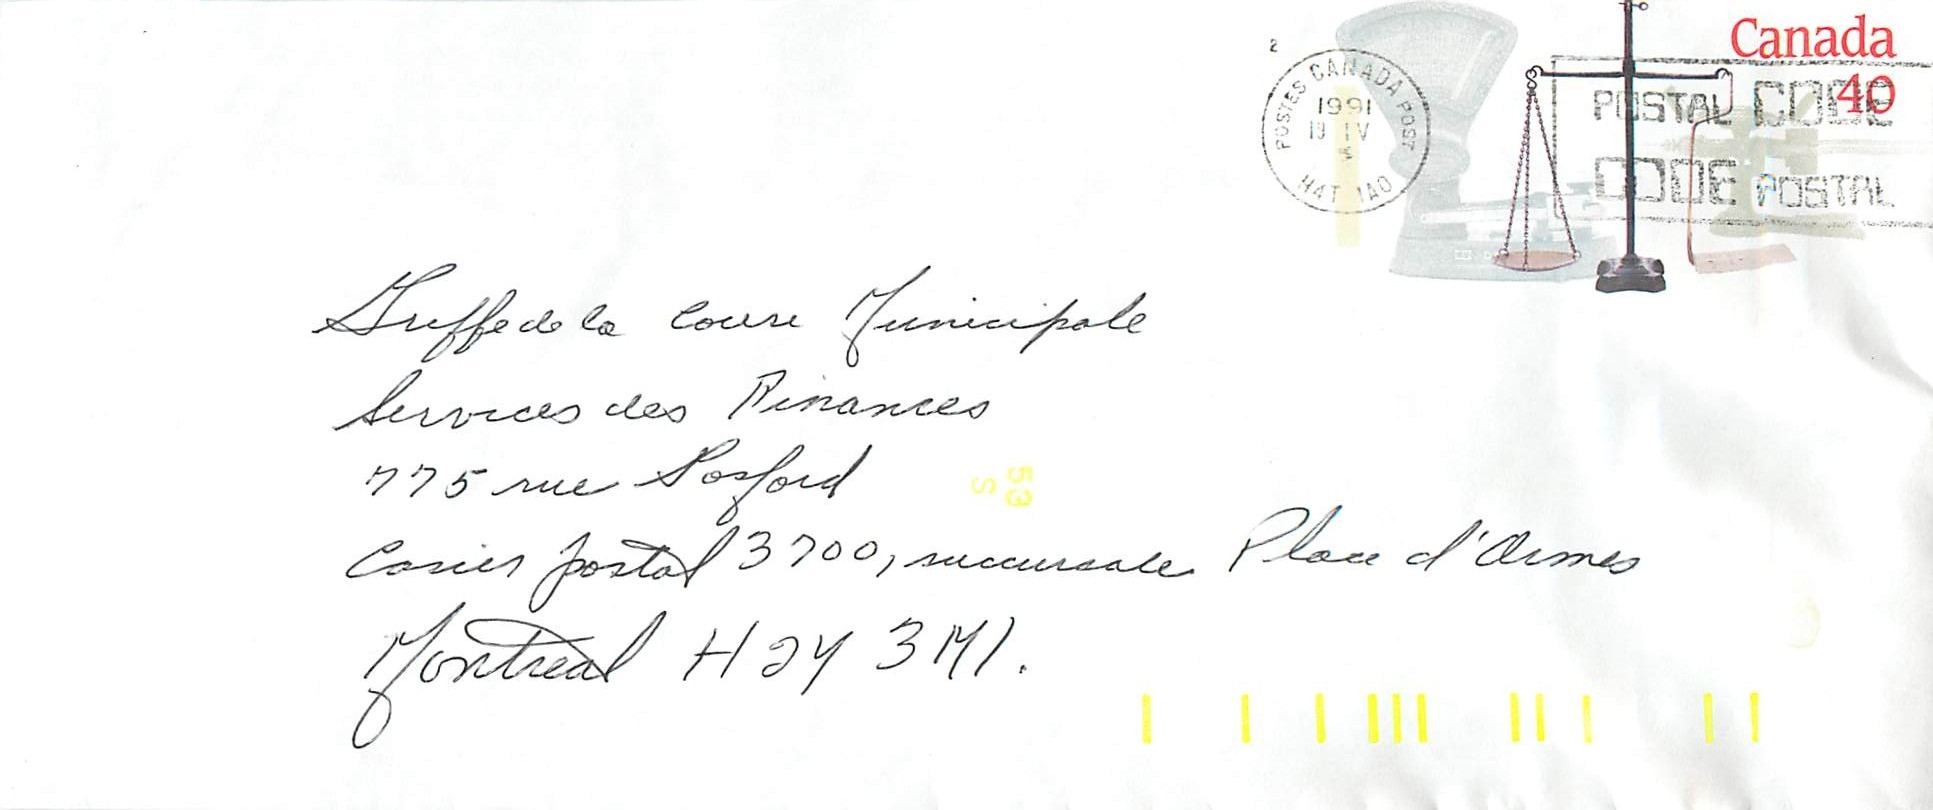 Canada
40
2
POSTES CANADA POST
1991
19 IV
H4T 1A0
POSTAL CODE
CODE POSTAL
Greffe de la Cour Municipale
Services des Finances
775 rue Gosford
53
S
Casier postal 3700, succursale Place d'Armes
Montreal H2Y 3M1.